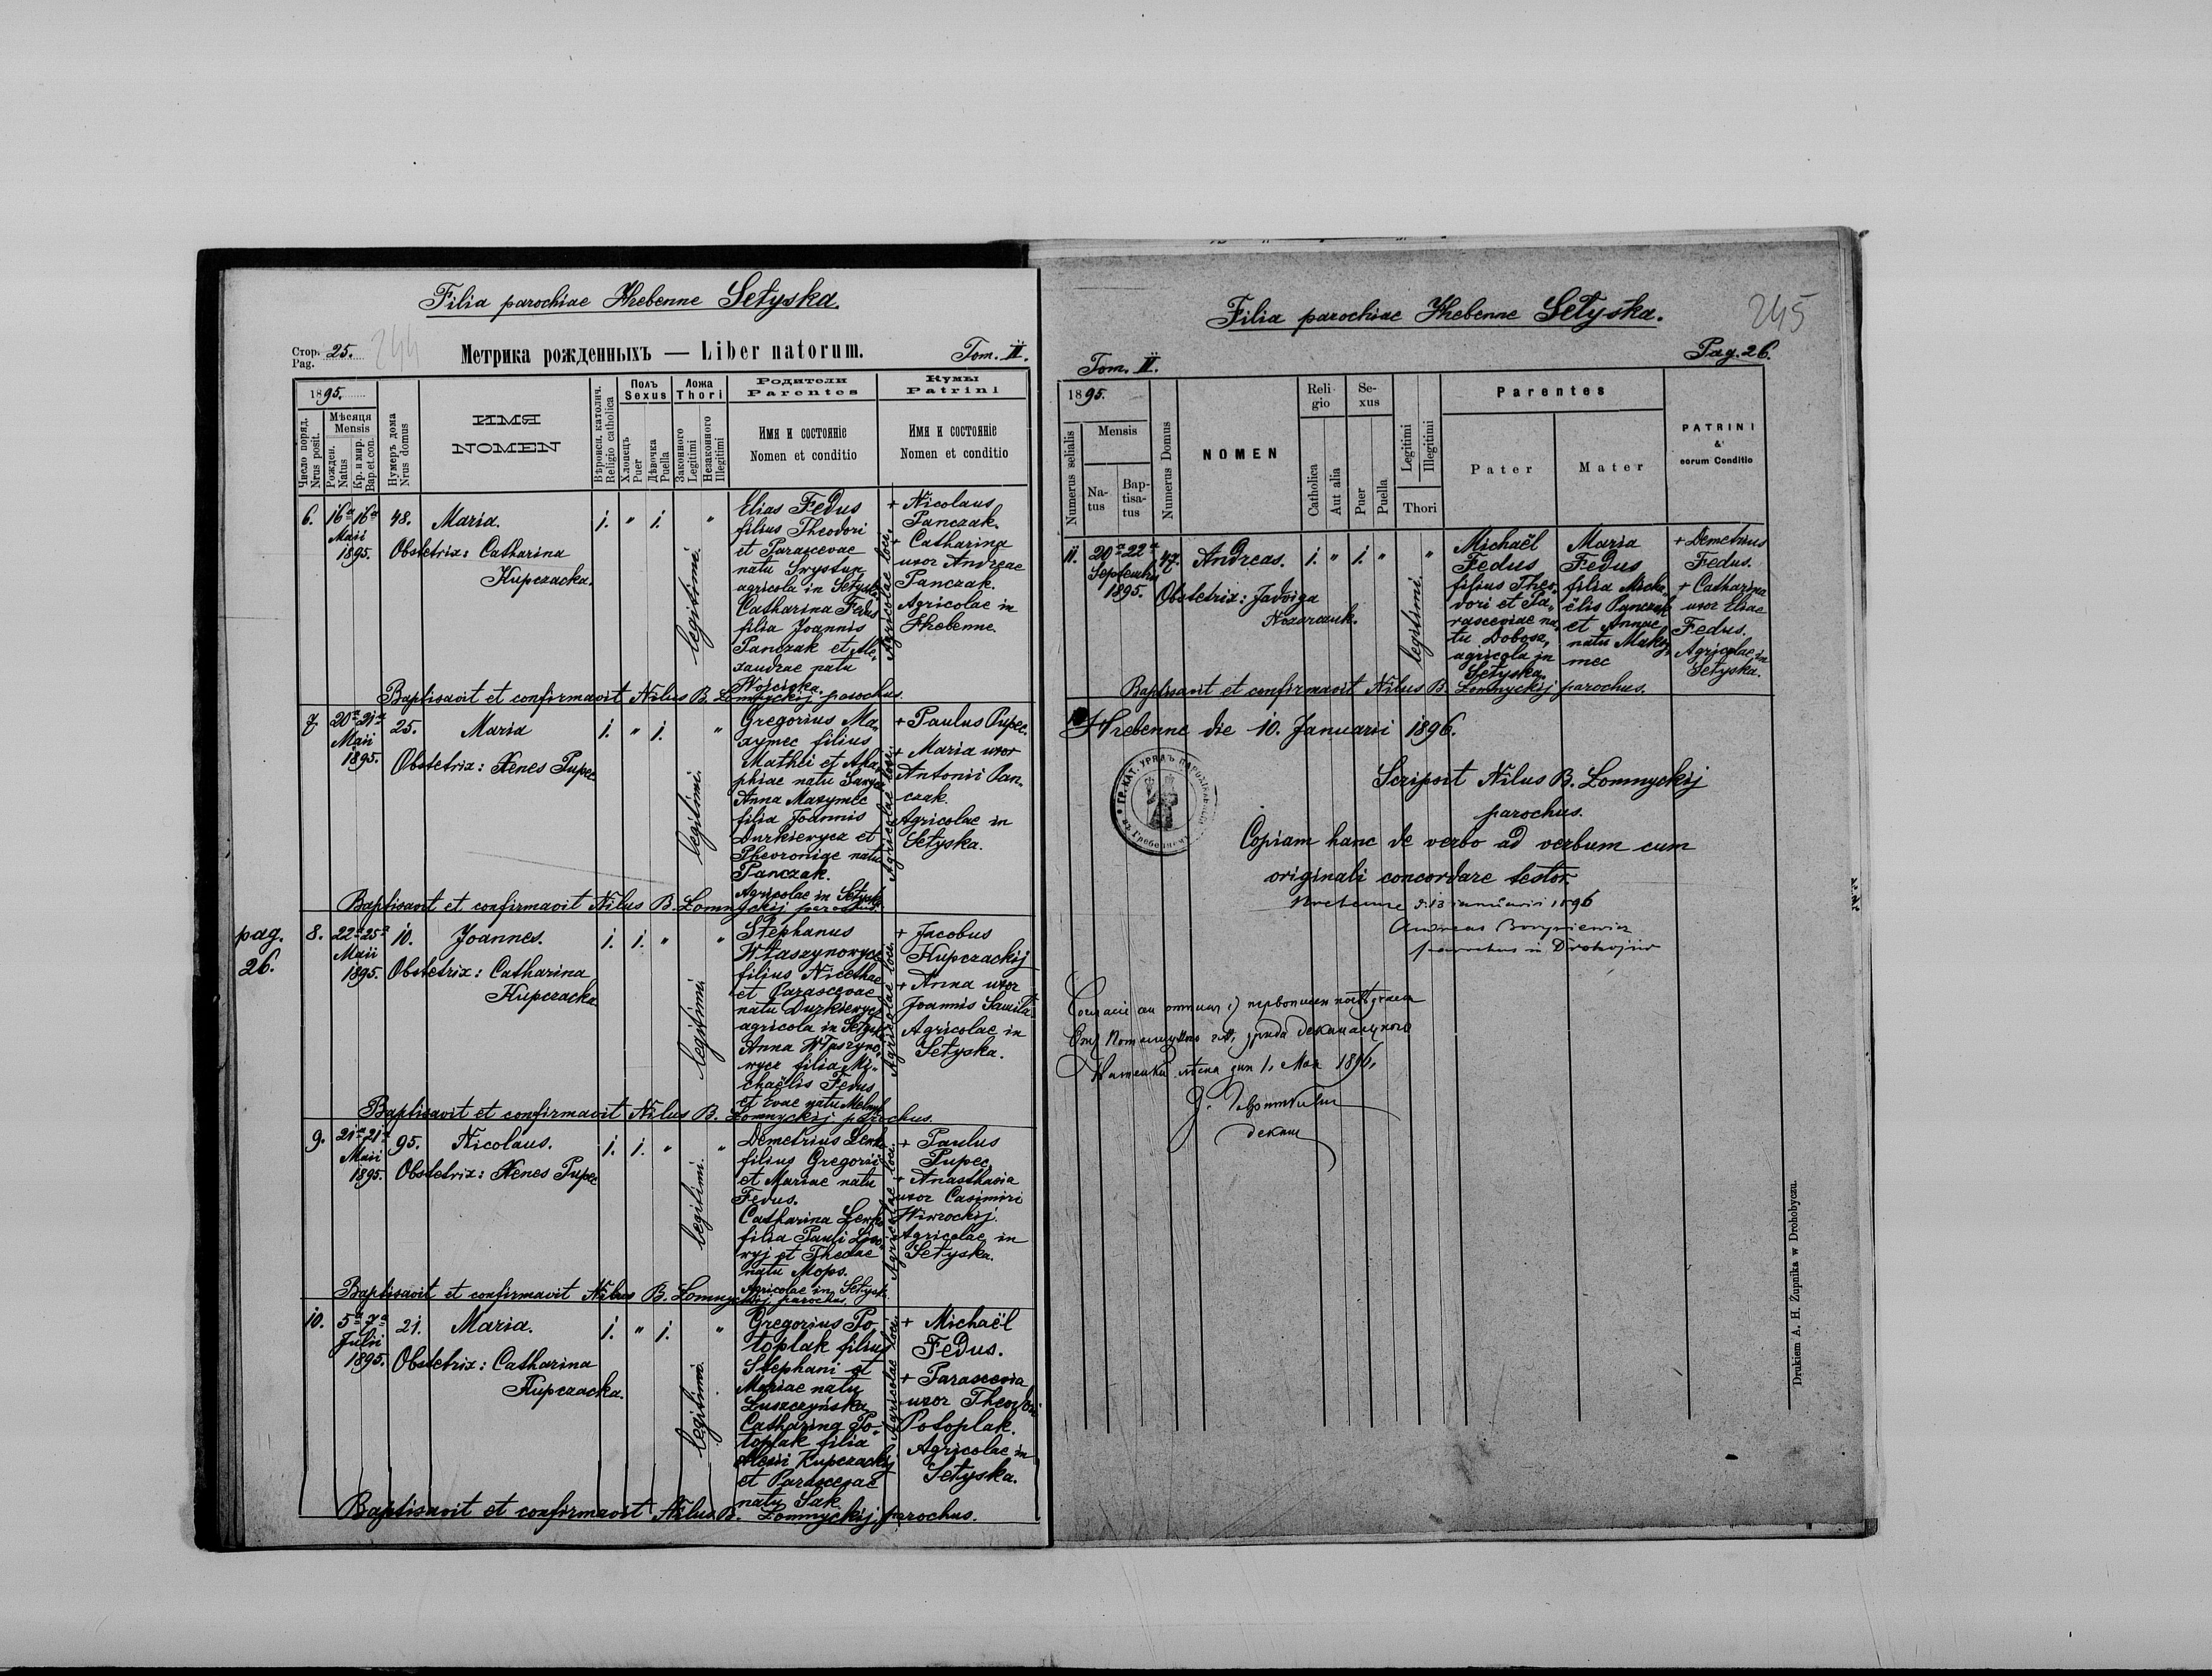 Filia parochiae Hrebenne Setyska.
Стор. 25.
Pag.
244
Метрика рожденныхъ — Liber natorum.
Tom. II.
1895.
Число поряд.
Nrus posit.
Мѣсяця
Mensis
Рожден.
Natus
Кр. и мир.
Bap. et con.
Нумеръ дома
Nrus domus
ИМЯ
NOMEN
Вѣроисп. католич.
Religio catholica
Полъ
Sexus
Хлопець
Puer
Дѣвочка
Puella
Ложа
Thori
Законного
Legitimi
Незаконного
Illegitimi
Родители
Parentes
Имя и состояніе
Nomen et conditio
Кумы
Patrini
Имя и состояніе
Nomen et conditio
6. 16a 16a 48. Maria. 1. " 1. "
Maii
1895. Obstetrix: Catharina
Kupczacka.
legitimi.
Elias Fedus
filius Theodori
et Parascevae
natu
agricola in Setyska
Catharina Fedus
filia Joannis
Panczak et Ale-
xandrae natu
Wojciska.
Agricolae loci.
+ Nicolaus
Panczak.
+ Catharina
uxor Andreae
Panczak.
Agricolae in
Hrebenne.
Baptisavit et confirmavit Nilus B. Lomnyckij parochus.
7. 20a 21a 25. Maria 1. " 1. "
Maii
1895. Obstetrix: Xenes Pupec
legitimi.
Gregorius Ma-
xymec filius
Mathei et Aha-
phiae natu
Anna Maxymec
filia Joannis
Durkiewycz et
Phevroniae natu
Panczak.
Agricolae in Setysk.
Agricolae loci.
+ Paulus Pupec.
+ Maria uxor
Antonii Pan-
czak.
Agricolae in
Setyska.
Baptisavit et confirmavit Nilus B. Lomnyckij parochus.
pag.
26.
8. 22a 25a 10. Joannes. 1. 1. " "
Maii
1895. Obstetrix: Catharina
Kupczacka
legitimi
Stephanus
Wtaszynowycz
filius Nicethae
et Parascevae
natu Durkiewycz
agricola in Setysk.
Anna Wtaszyno-
wycz filia Mi-
chaëlis Fedus
et Evae natu Melnyk
Agricolae loci.
+ Jacobus
Kupczackij
+ Anna uxor
Joannis
Agricolae in
Setyska.
Baptisavit et confirmavit Nilus B. Lomnyckij parochus.
9. 21a 21a 95. Nicolaus. 1. 1. " "
Maii
1895. Obstetrix: Xenes Pupec
legitimi.
Demetrius
filius Gregorii
et Mariae natu
Fedus.
Catharina
filia Pauli
et Theclae
natu Mops.
Agricolae in Setysk.
Agricolae loci.
+ Paulus
Pupec
+ Anasthasia
uxor Casimiri
Wirrockij.
Agricolae in
Setyska.
Baptisavit et confirmavit Nilus B. Lomnyckij parochus.
10. 5a 7a 21. Maria. 1. " 1. "
Julii
1895. Obstetrix: Catharina
Kupczacka.
legitimi.
Gregorius Po-
toplak filius
Stephani et
Mariae natu
Luszczynska
Catharina Po-
toplak filia
Alexii Kupczackij
et Parascevae
natu Sak.
Agricolae loci.
+ Michaël
Fedus.
+ Parascevia
uxor Theodori
Potoplak.
Agricolae in
Setyska.
Baptisavit et confirmavit Nilus B. Lomnyckij parochus.
Filia parochiae Hrebenne Setyska.
245
Tom. II.
Pag. 26.
1895.
Numerus serialis
Mensis
Na-
tus
Bap-
tisa-
tus
Numerus Domus
NOMEN
Reli-
gio
Catholica
Aut alia
Se-
xus
Puer
Puella
Legitimi
Illegitimi
Thori
Parentes
Pater
Mater
PATRINI
&
eorum Conditio
11. 20a 22a 47. Andreas. 1. " 1. " "
Septembri
1895. Obstetrix: Jadviga
Nazarczuk.
legitimi.
Michaël
Fedus
filius Theo-
dori et Pa-
rasceviae na-
tu Dobosz,
agricola in
Setyska.
Maria
Fedus
filia Micha-
ëlis Panczak
et Annae
natu Maksy-
mec
+ Demetrius
Fedus.
+ Catharina
uxor Eliae
Fedus.
Agricolae in
Setyska.
Baptisavit et confirmavit Nilus B. Lomnyckij parochus.
Hrebenne die 10. Januarii 1896.
Scripsit Nilus B. Lomnyckij
parochus.
Copiam hanc de verbo ad verbum cum
originali concordare testor.
Hrebenne d. 13 januarii 1896
Andreas
parochus in
1. Мая 1896.
декан
Drukiem A. H. Żupnika w Drohobyczu.